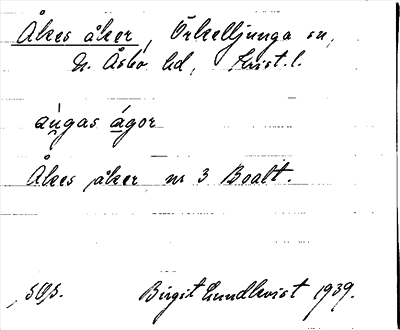 Åkes åker, Örkelljunga sn,
N. Åsbo hd, Krist. l.
áu̯gas ágor
Åkes åker nr 3 Boalt.
Birgit Lundkvist 1939.